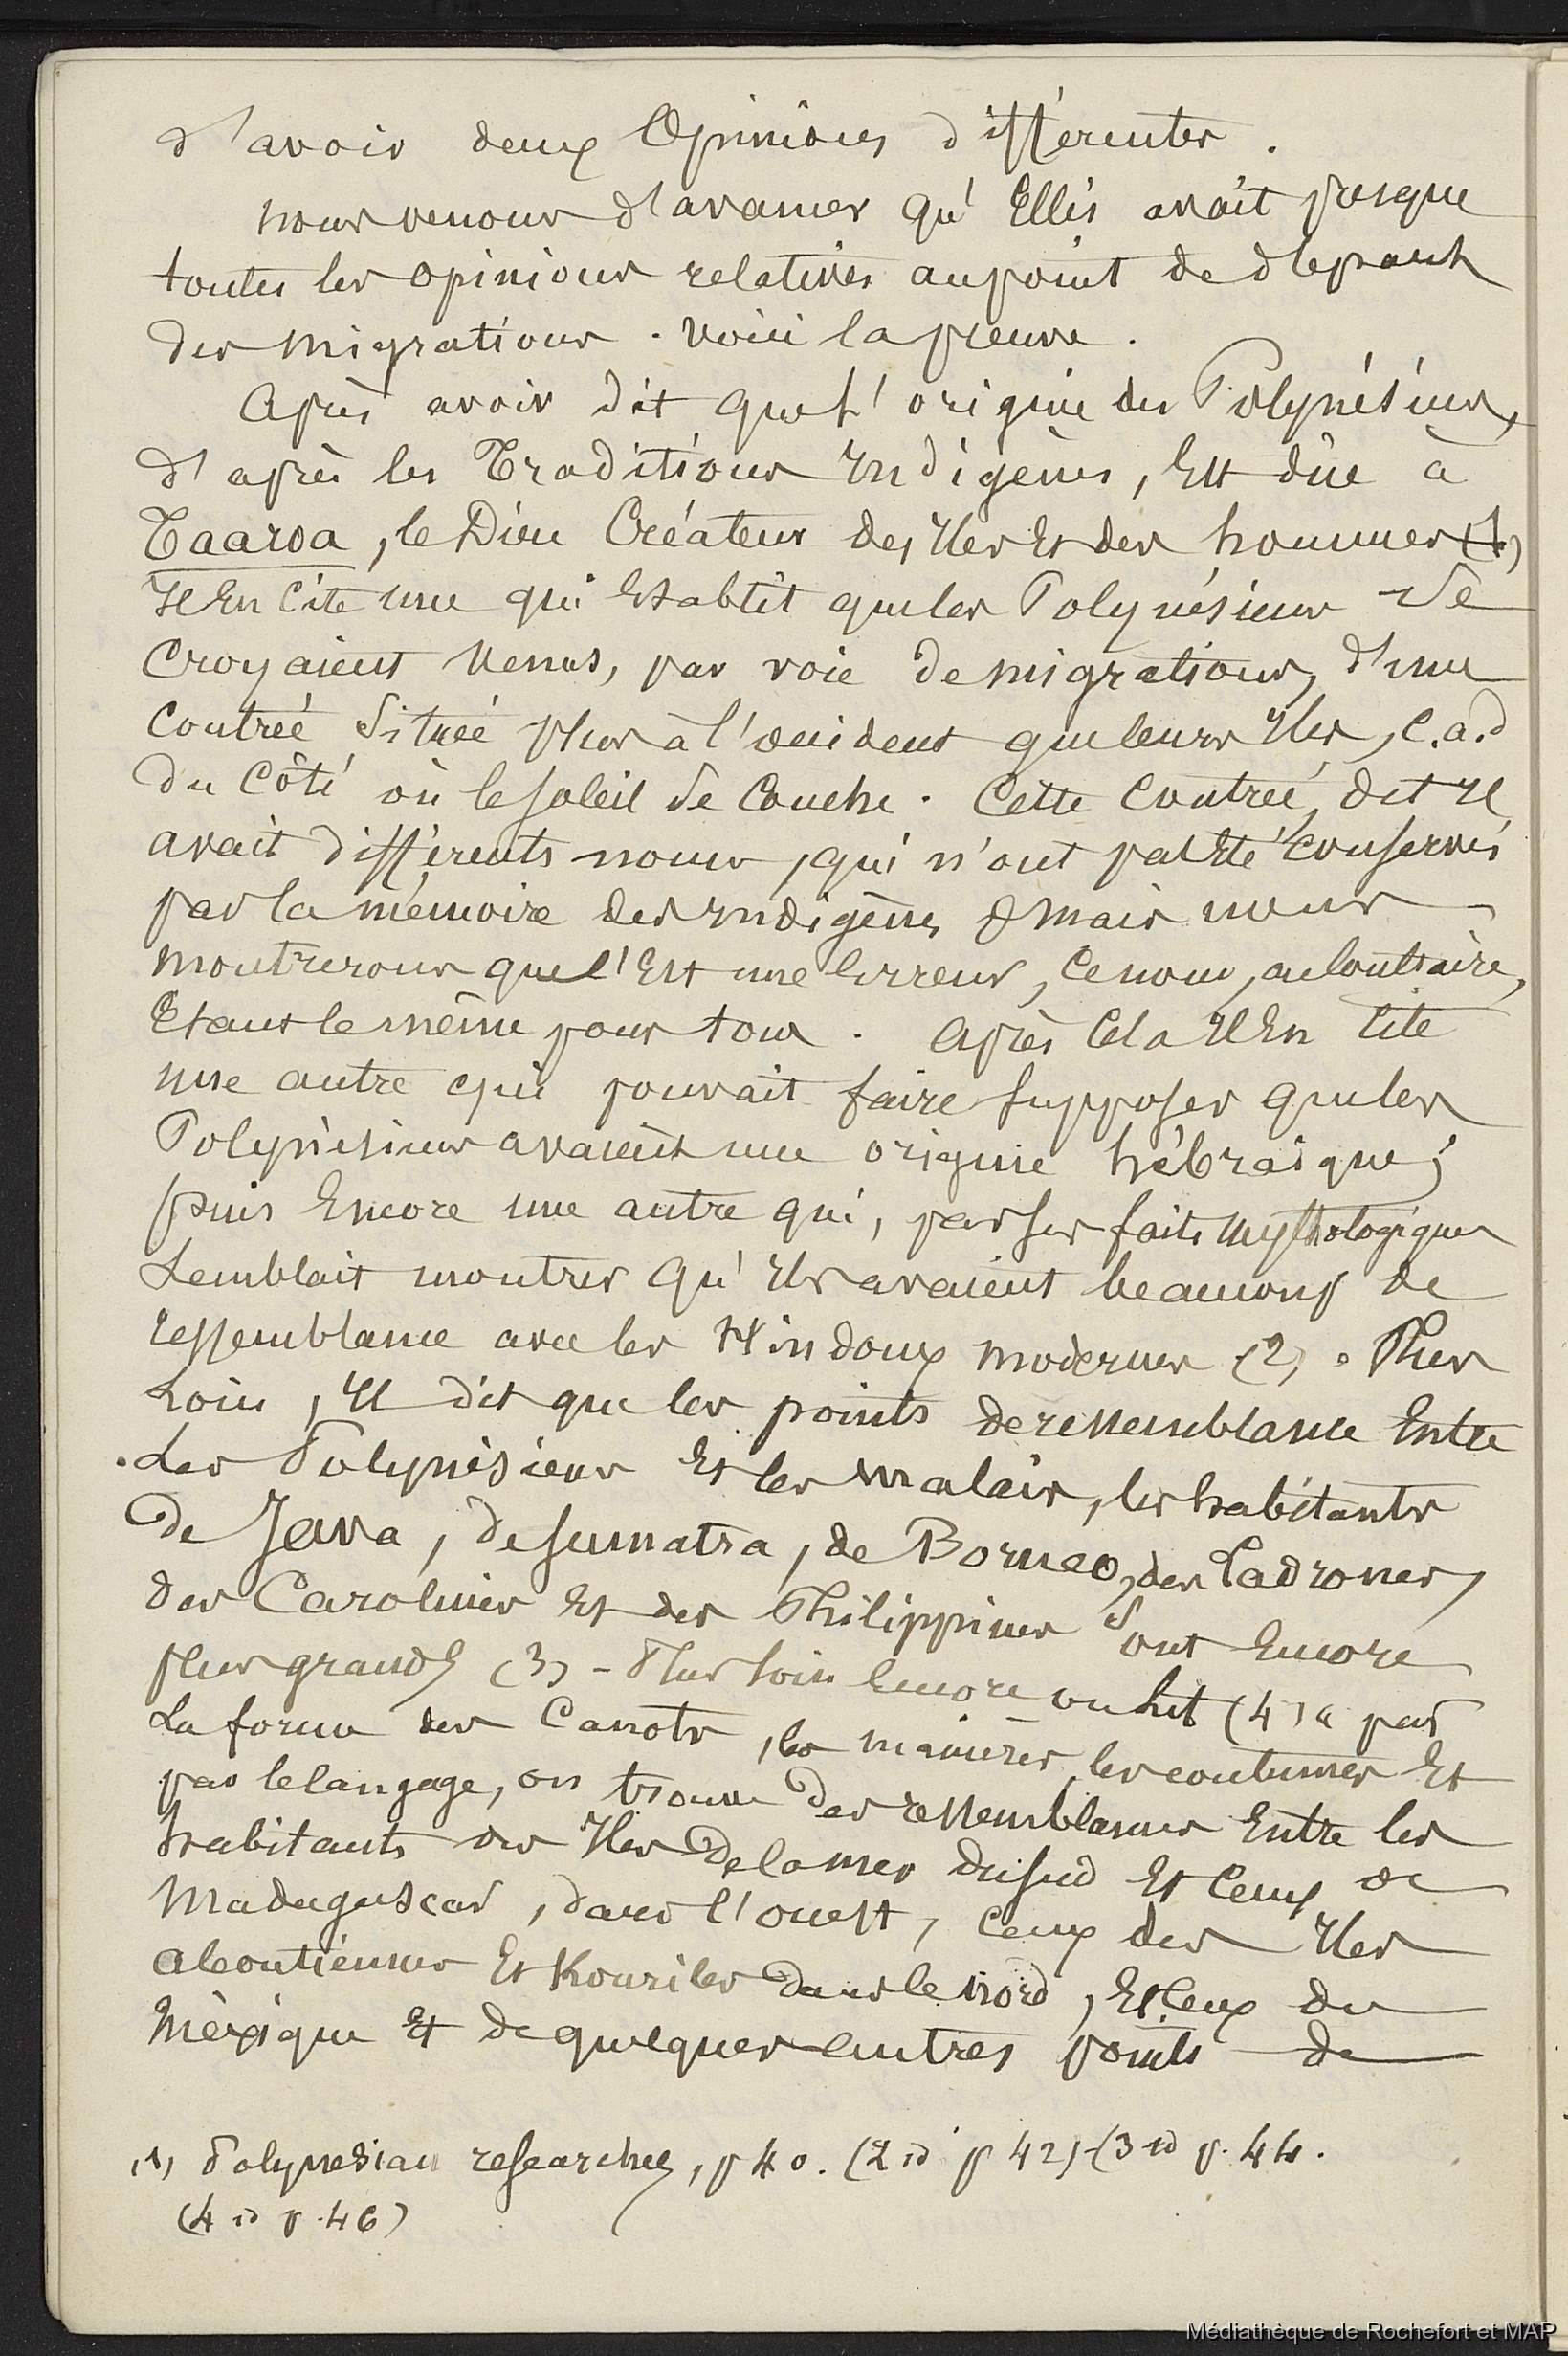 d'avoir deux Opinions différentes.
nous venons d'avancer qu'Ellis avait presque
toutes les opinions relatives au point de départ
des migrations. Voici la preuve.
Après avoir dit que l'origine des Polynésiens,
d'après les Traditions Indigènes, Est dûe à
Taaroa, le Dieu Créateur des Iles Et des hommes (1)
Il En cite une qui Etablit que les Polynésiens se
Croyaient Venus, par voie de migrations, d'une
Contrée Située plus à l'occident que leurs Iles, C.a.d
du Côté où le soleil se Couche. Cette Contrée, dit Il
avait différents noms, qui n'ont pas Eté Conservés
par la mémoire des Indigènes mais nous
montrerons que c'Est une Erreur, Ce nom, au Contraire,
Etant le même pour tous. Après Cela Il En Cite
une autre qui pouvait faire supposer que les
Polynésiens avaient une origine hébraïque;
puis Encore une autre qui, par ses faits mythologiques
Semblait montrer qu'Ils avaient beaucoup de
ressemblance avec les Hindoux modernes (2). Plus
Loin, Il dit que les points de ressemblance Entre
Les Polynésiens Et les malais, les habitants
de Java, de Sumatra, de Borneo, des Ladrones,
des Carolines Et des Philippines Sont Encore
plus grands (3) - Plus loin Encore on lit (4) « par
La forme des Canots, les manières, les coutumes Et
par le langage, on trouve des ressemblances Entre les
habitants des Iles de la mer du sud Et Ceux de
Madagascar, dans l'ouest, Ceux des Iles
Aléoutiennes Et Kouriles dans le nord, Et Ceux du
Mèxique Et de quelques autres points de
(1) Polynesian researches, p 40. (2 id p 42) - (3 id p. 44.
(4 id p. 46)
Médiathèque de Rochefort et MAP